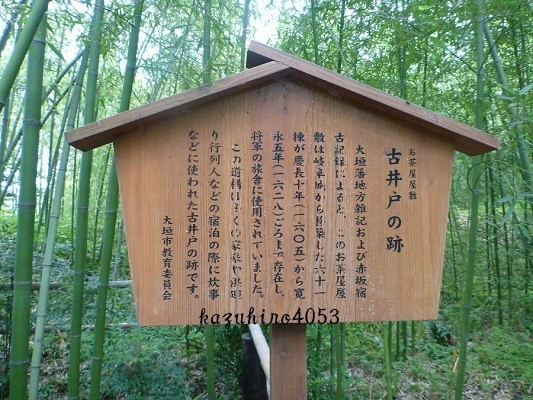 お茶屋屋敷
古井戸の跡
大垣藩地方雑記および赤坂宿
古記録によると、このお茶屋屋
敷は岐阜城から移築した六十一
棟が慶長十年(一六〇五)から寛
永五年(一六二八)ごろまで存在し、
将軍の旅舎に使用されていました。
この遺構は
り行列人などの宿泊の際に炊事
などに使われた古井戸の跡です。
大垣市教育委員会
kazuhiro4053